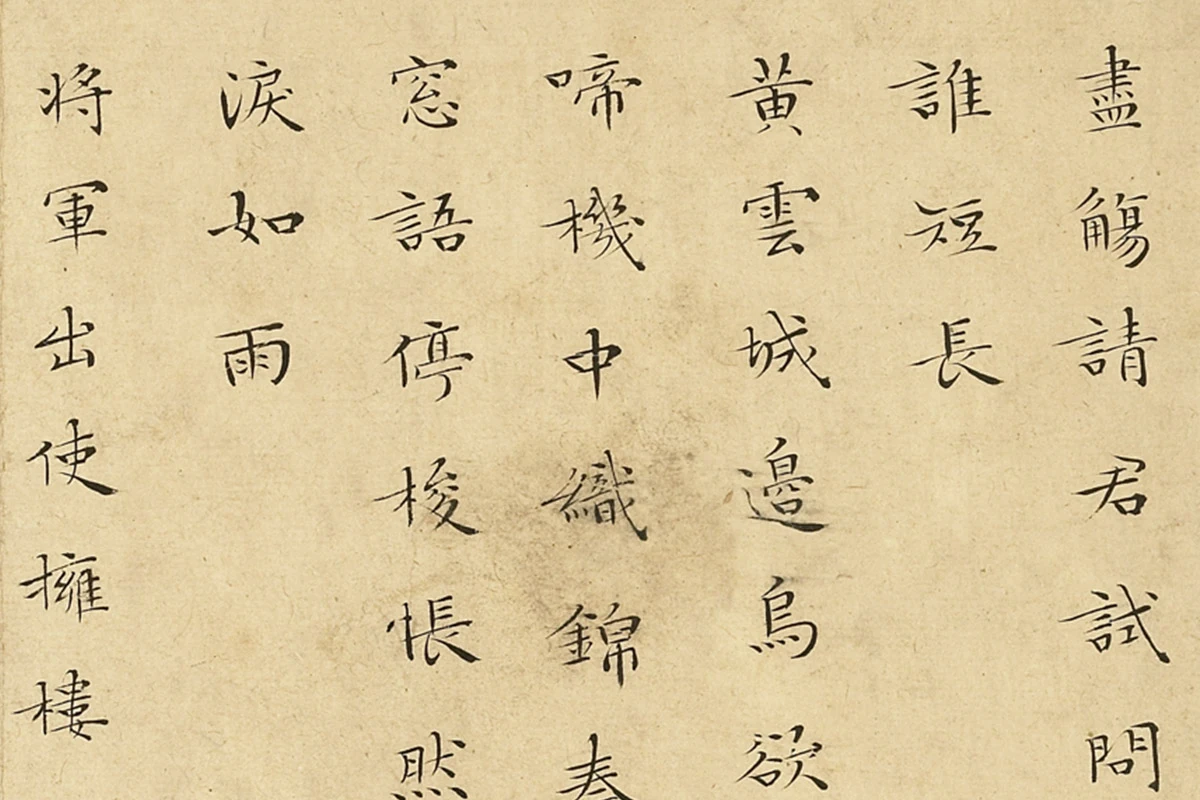 盡觴請君試問
誰短長
黃雲城邊烏欲
啼機中織錦秦
窓語停梭悵然
淚如雨
將軍出使擁樓